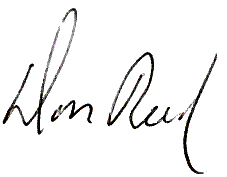 Don Reed